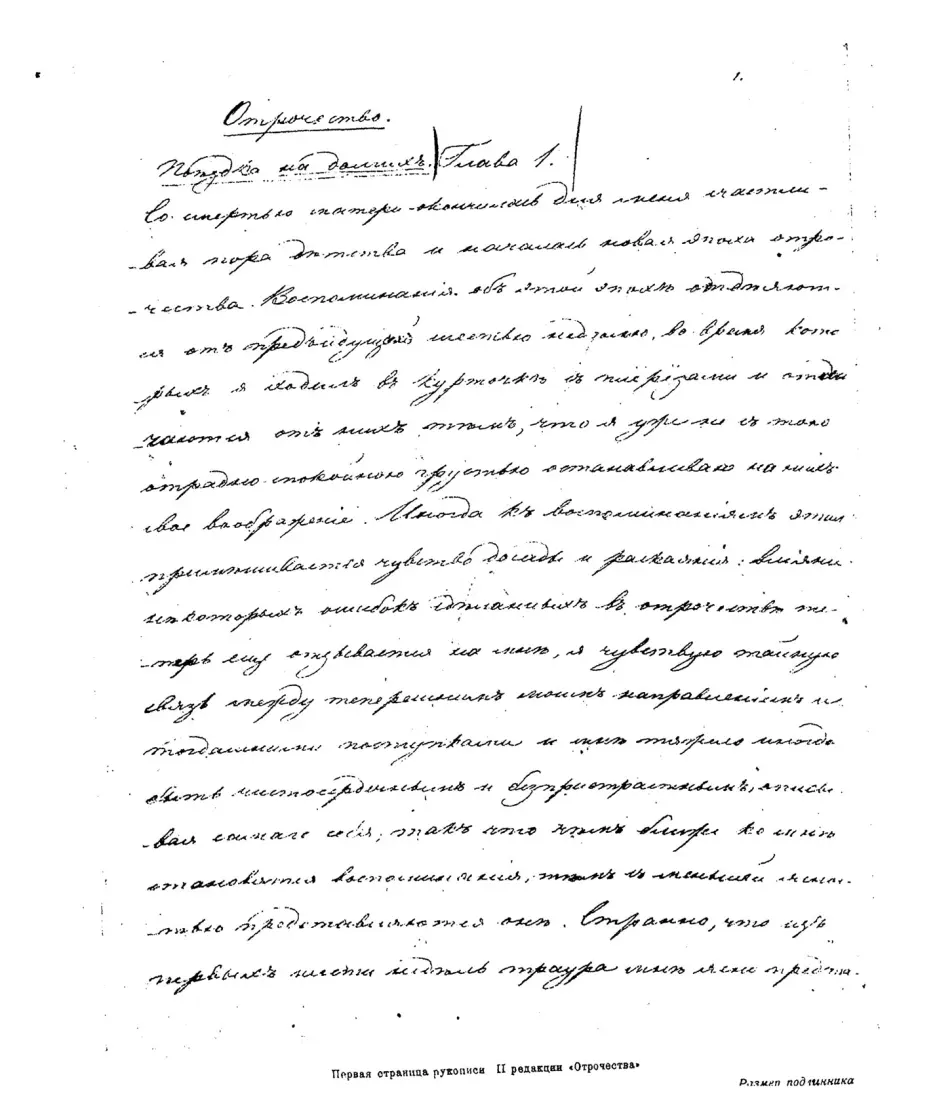 1.
Отрочество.
Поѣздка на долгихъ. Глава 1.
Со смертью матери окончилась для меня счастли-
-вая пора дѣтства и началась новая эпоха отро-
-чества. Воспоминанія объ этой эпохѣ отдѣляют-
ся отъ предъидущей шестью недѣлями, во время кото
рыхъ я ходилъ въ курточкѣ съ плерезами и отли
чаются отъ нихъ тѣмъ, что я уже не съ тою
отрадно-спокойною грустью останавливаю на нихъ
свое воображеніе. Иногда къ воспоминаніямъ этимъ
примѣшивается чувство досады и раскаянія: вліяніе
нѣкоторыхъ ошибокъ сдѣланныхъ въ отрочествѣ те-
-перь еще отзывается на мнѣ, я чувствую тайную
связь между теперешнимъ моимъ направленіемъ и
тогдашними поступками и мнѣ тяжело иногда
быть чистосердечнымъ и безпристрастнымъ, описы
-вая самаго себя; такъ что чѣмъ ближе ко мнѣ
становятся воспоминанія, тѣмъ съ меньшей яснос-
-тью представляются онѣ. Странно, что изъ
первыхъ шести недѣль траура мнѣ ясно предста-
Первая страница рукописи II редакции «Отрочества»
Размер подлинника